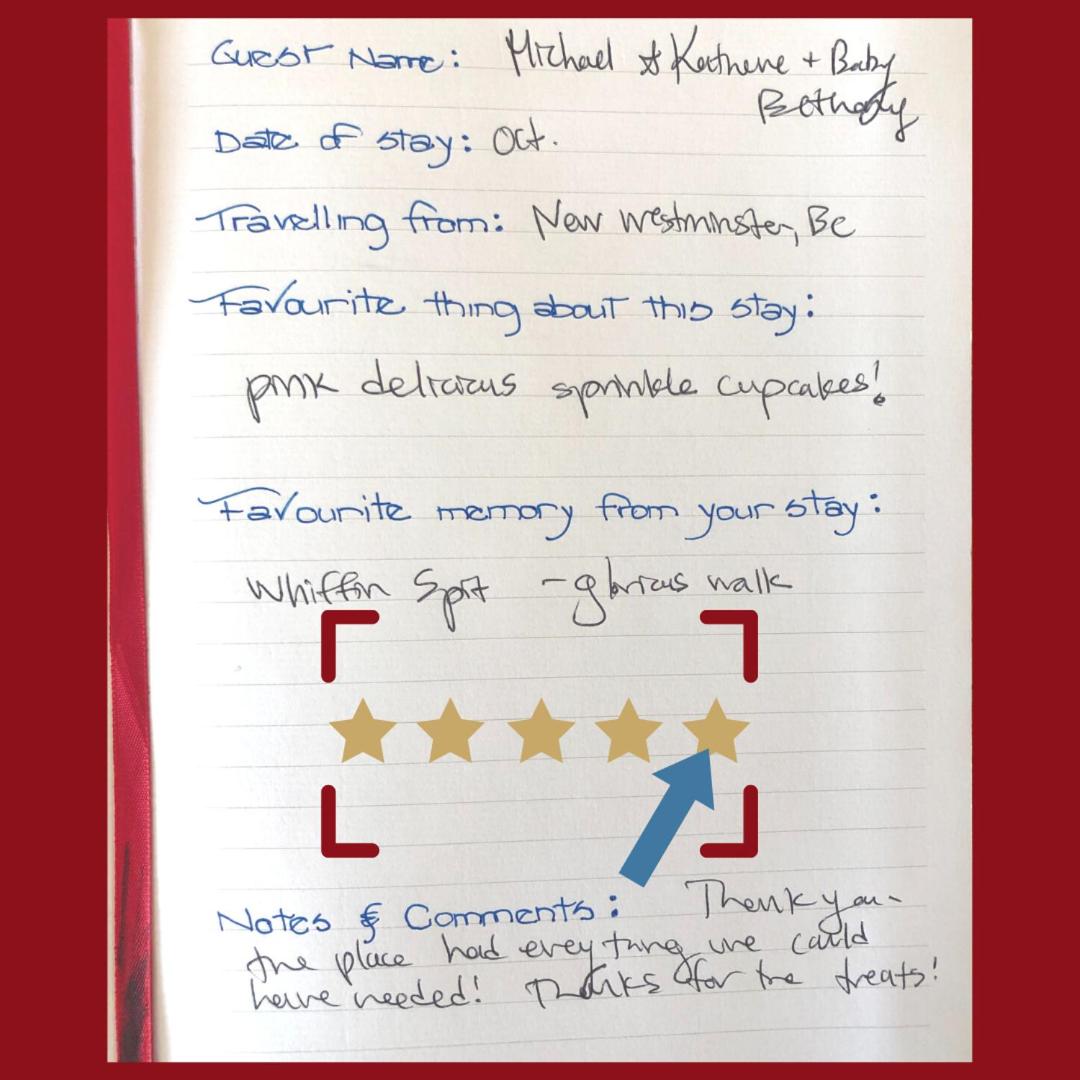 Guest Name: Michael & Katherine + Baby
Bethany
Date of stay: Oct.
Travelling from: New Westminster, BC
Favourite thing about this stay:
pink delicious sprinkle cupcakes!
Favourite memory from your stay:
Whiffin Spit - glorious walk
Notes & Comments: Thank you-
the place had everything we could
have needed! Thanks for the treats!